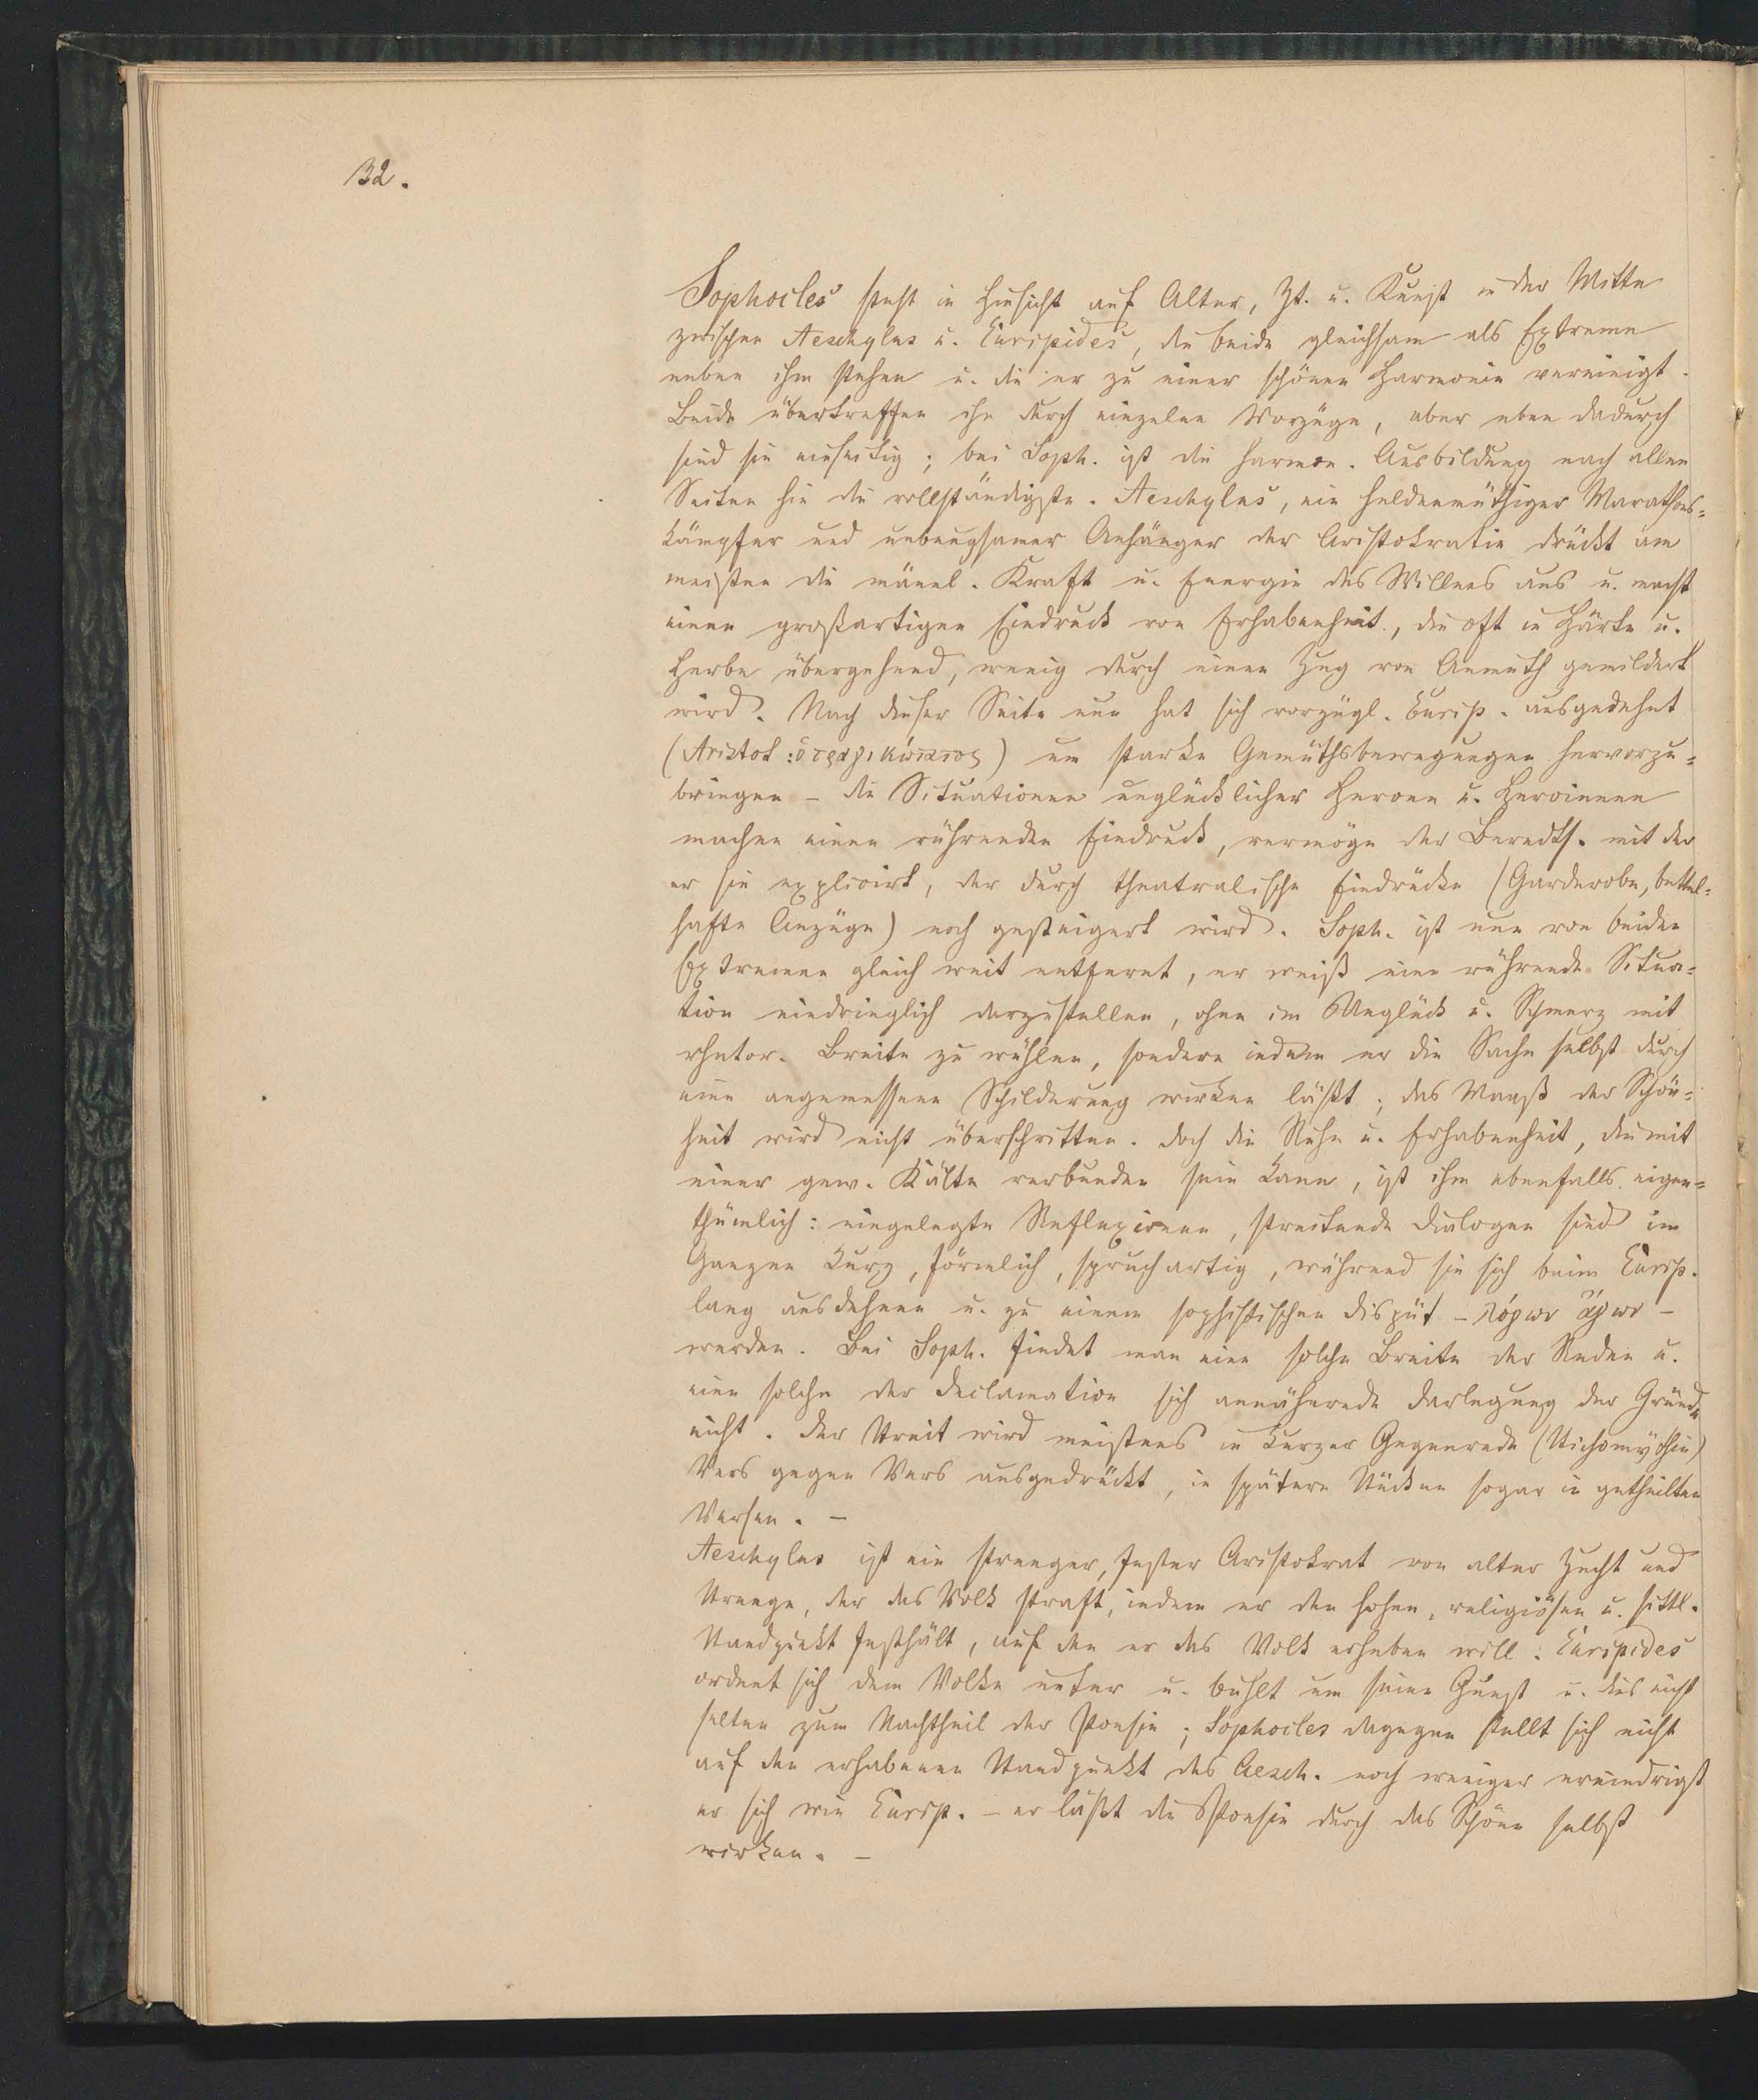 32.
Sophocles steht in Hinsicht auf Alter, Zt. u. Kunst in der Mitte
zwischen Aeschylus u. Euripides, die beide gleichsam als Extreme
neben ihm stehen u. die er zu einer schönen Harmonie vereinigt.
Beide übertreffen ihn durch einzelne Vorzüge, aber eben dadurch
sind sie einseitig; bei Soph. ist die harmon. Ausbildung nach allen
Seiten hin die vollständigste. Aeschylus, ein heldenmüthiger Marathons=
kämpfer und unbeugsamer Anhänger der Aristokratie drückt am
meisten die männl. Kraft u. Energie des Willens aus u. macht
einen großartigen Eindruck von Erhabenheit, die oft in Härte u.
Herbe übergehend, wenig durch einen Zug von Anmuth gemildert
wird. Nach dieser Seite nun hat sich vorzügl. Eurip. ausgedehnt
(Aristot: ὁ τραγικώτατος) um starke Gemüthsbewegungen hervorzu=
bringen – die Situationen unglücklicher Heroen u. Heroinnen
machen einen rührenden Eindruck, vermöge der Beredts. mit der
er sie explicirt, der durch theatralische Eindrücke (Garderobe, bettel=
hafte Anzüge) noch gesteigert wird. Soph. ist nun von beiden
Extremen gleich weit entfernt, er weiß eine rührende Situa=
tion eindringlich darzustellen, ohne im Unglück u. Schmerz mit
rhetor. Breite zu wühlen, sondern indem er die Sache selbst durch
eine angemessene Schilderung wirken läßt; das Maaß der Schön=
heit wird nicht überschritten. Doch die Ruhe u. Erhabenheit, die mit
einer gew. Kälte verbunden sein kann, ist ihm ebenfalls eigen=
thümlich: eingelegte Reflexionen, streitende Dialogen sind im
Ganzen kurz, förmlich, spruchartig, während sie sich beim Eurip.
lang ausdehnen u. zu einem sophistischen Disput – λόγων ἄγων –
werden. Bei Soph. findet man eine solche Breite der Reden u.
eine solche der Declamation sich annähernde Darlegung der Gründe
nicht. Der Streit wird meistens in kurzer Gegenrede (Stichomythie)
Vers gegen Vers ausgedrückt, in spätern Stücken sogar in getheilten
Versen. –
Aeschylus ist ein strenger, fester Aristokrat von alter Zucht und
Strenge, der das Volk straft, indem er den hohen, religiösen u. sittl.
Standpunkt festhält, auf den er das Volk erheben will: Euripides
ordnet sich dem Volke unter u. buhlt um seine Gunst u. dies nicht
selten zum Nachtheil der Poesie; Sophocles dagegen stellt sich nicht
auf den erhabenen Standpunkt des Aesch. noch weniger erniedrigt
er sich wie Eurip. – er läßt die Poesie durch das Schöne selbst
wirken. –